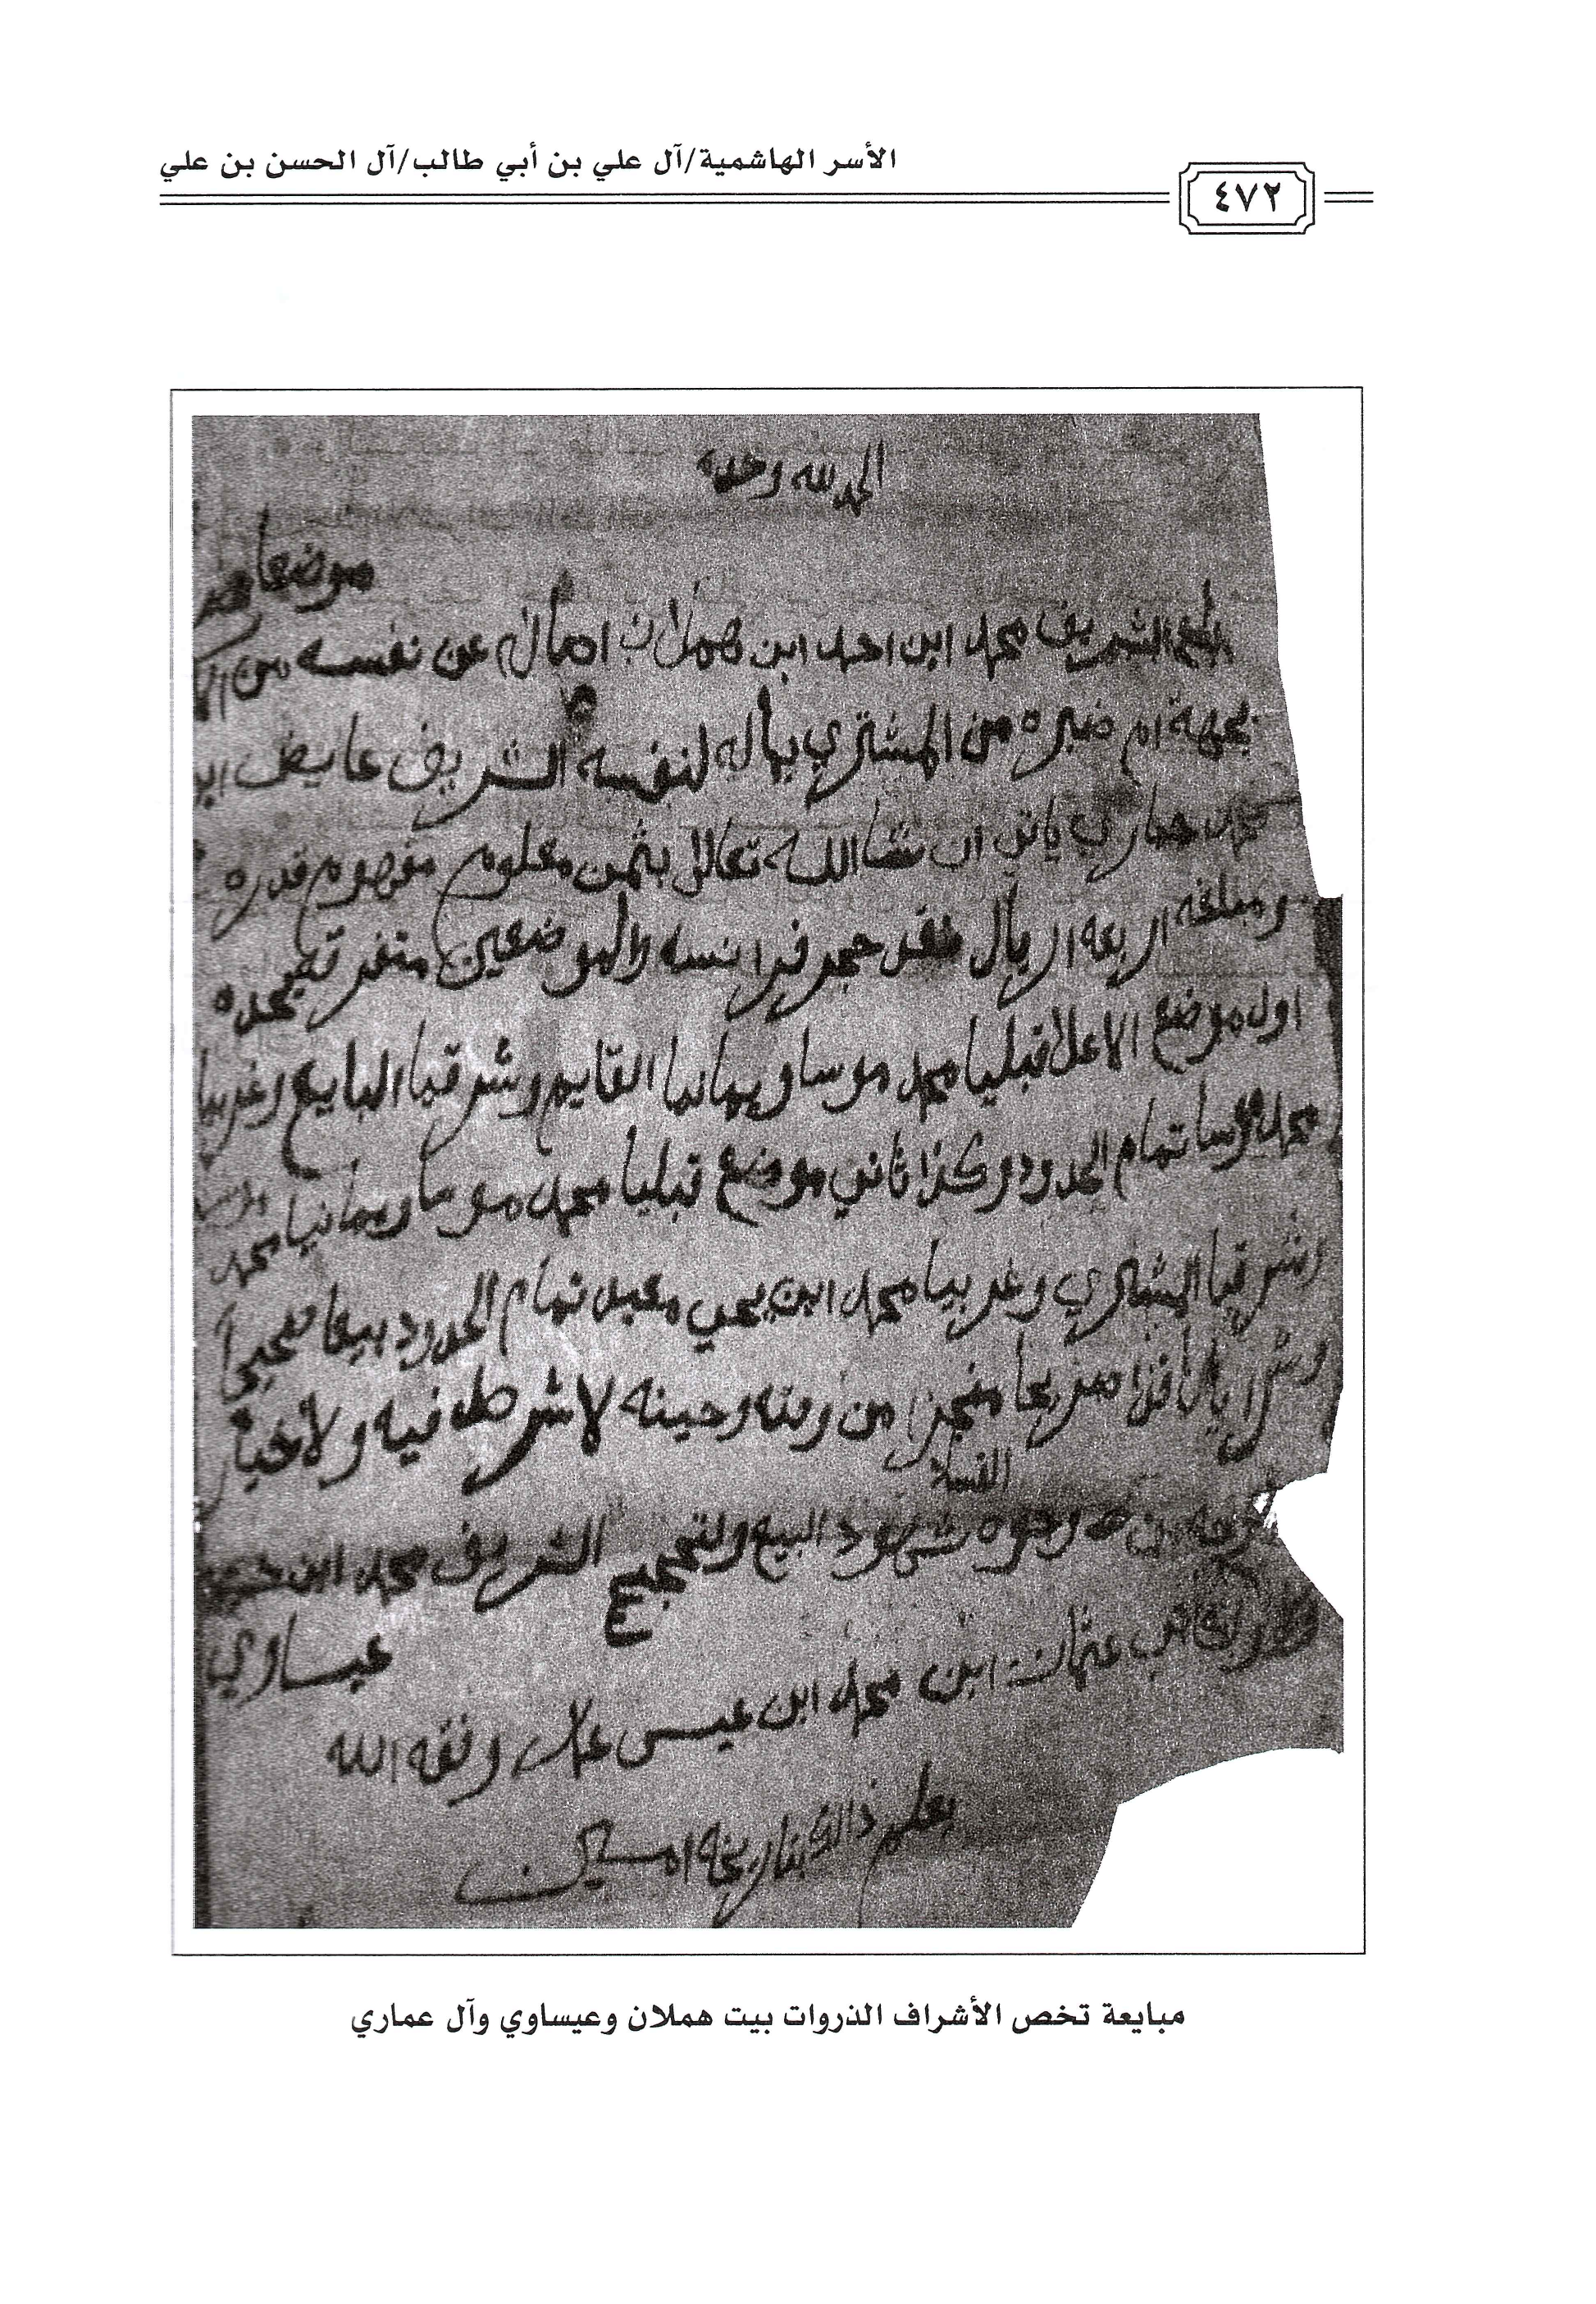 الأسر الهاشمية/آل علي بن أبي طالب/آل الحسن بن علي
٤٧٢
الحمد لله وحده
موضعا
الشريف محمد ابن احمد ابن هملان اصاله عن نفسه من
بجهة ام ضبره من المشتري بماله لنفسه الشريف عايض ابن
محمد عماري ياتي ان شا الله تعالى بثمن معلوم مفهوم قدره
ومبلغه اربعه اريال نقد حجر فرانسه والموضعين متفرقه يحده
اول موضع الاعلا قبليا محمد موسا ويمانيا القايم وشرقيا البايع وغربيا
محمد موسا تمام الحدود وكذا ثاني موضع قبليا محمد موسا ويمانيا محمد موسا
وشرقيا المشتري وغربيا محمد ابن يحي مقبل تمام الحدود بيعا صحيحا
وشرا نافذا صريحا منجزا من وقته وحينه لا شرط فيه ولا خيار
الفسلا
وجوه شهود البيع ولتصحيح الشريف محمد ابن
عيساوي
عثمان ابن محمد ابن عيسى علان وفقه الله
بعلم ذالك بتاريخه امين
مبايعة تخص الأشراف الذروات بيت هملان وعيساوي وآل عماري